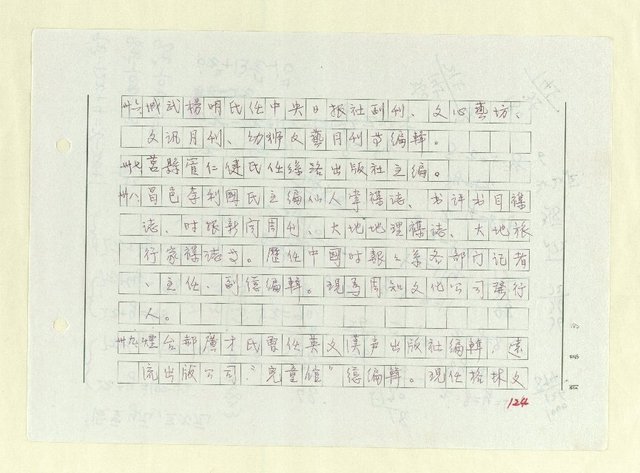 卅六城武楊明氏任中央日报社副刊、文心藝坊、
文讯月刊、幼獅文藝月刊等编輯。
卅七莒縣 仁健氏任絲路出版社主编。
卅八昌邑李利國氏主编仙人掌襍誌、书评书目襍
誌、时报新闻周刊、大地地理襍誌、大地旅
行家襍誌等。歷任中國时報 系各部门记者
、主任、副總编輯。现為周知文化公司發行
人。
卅九煙台部廣才氏曾任英文漢声出版社编輯，遠
流出版公司"兒童館"總编輯。現任格林文
124